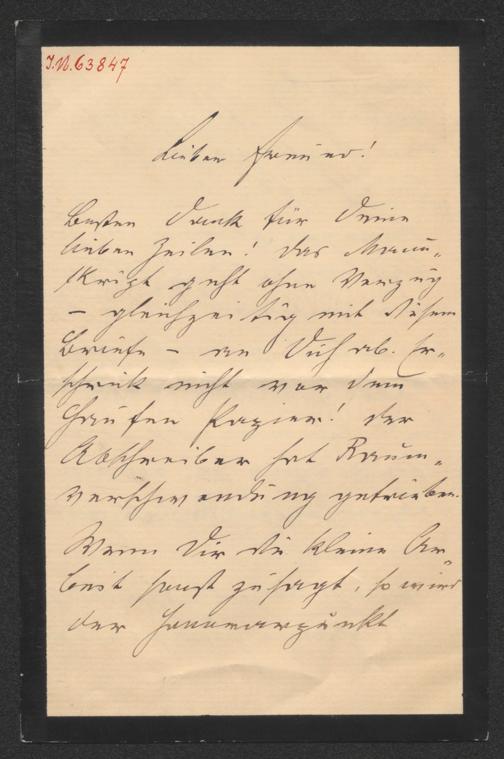 I.N. 63847
Lieber Freund!
Besten Dank für Deine
lieben Zeilen! Das Manu-
skript geht ohne Verzug
– gleichzeitig mit diesem
Briefe – an Dich ab. Er-
schrick nicht vor dem
Haufen Papier! Der
Abschreiber hat Raum-
verschwendung getrieben.
Wenn Dir die kleine Ar-
beit sonst zusagt, so wird
der Honorarpunkt